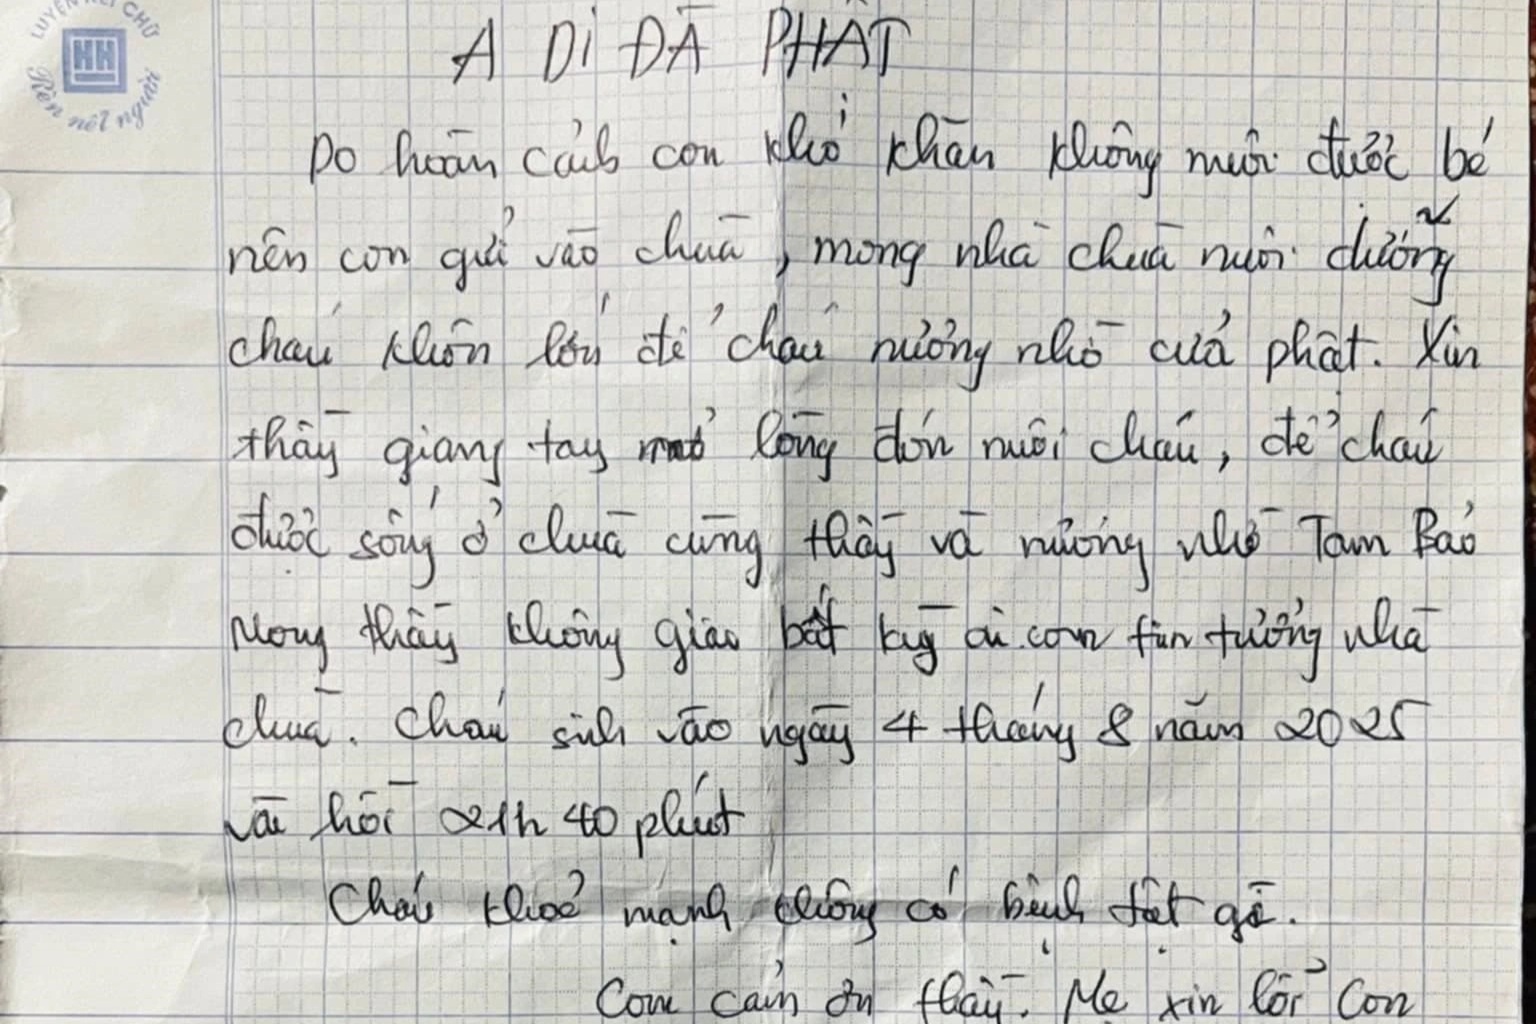 LUYỆN NÉT CHỮ
HH
Rèn nết người
A DI ĐÀ PHẬT
Do hoàn cảnh con khó khăn không nuôi được bé
nên con gửi vào chùa, mong nhà chùa nuôi dưỡng
cháu khôn lớn để cháu nương nhờ cửa phật. Xin
thầy giang tay mở lòng đón nuôi cháu, để cháu
được sống ở chùa cùng thầy và nương nhờ Tam Bảo
Mong thầy không giao bất kỳ ai con tin tưởng nhà
chùa. Cháu sinh vào ngày 4 tháng 8 năm 2025
vào hồi 21h 40 phút
Cháu khoẻ mạnh không có bệnh tật gì.
Con cảm ơn thầy. Mẹ xin lỗi con